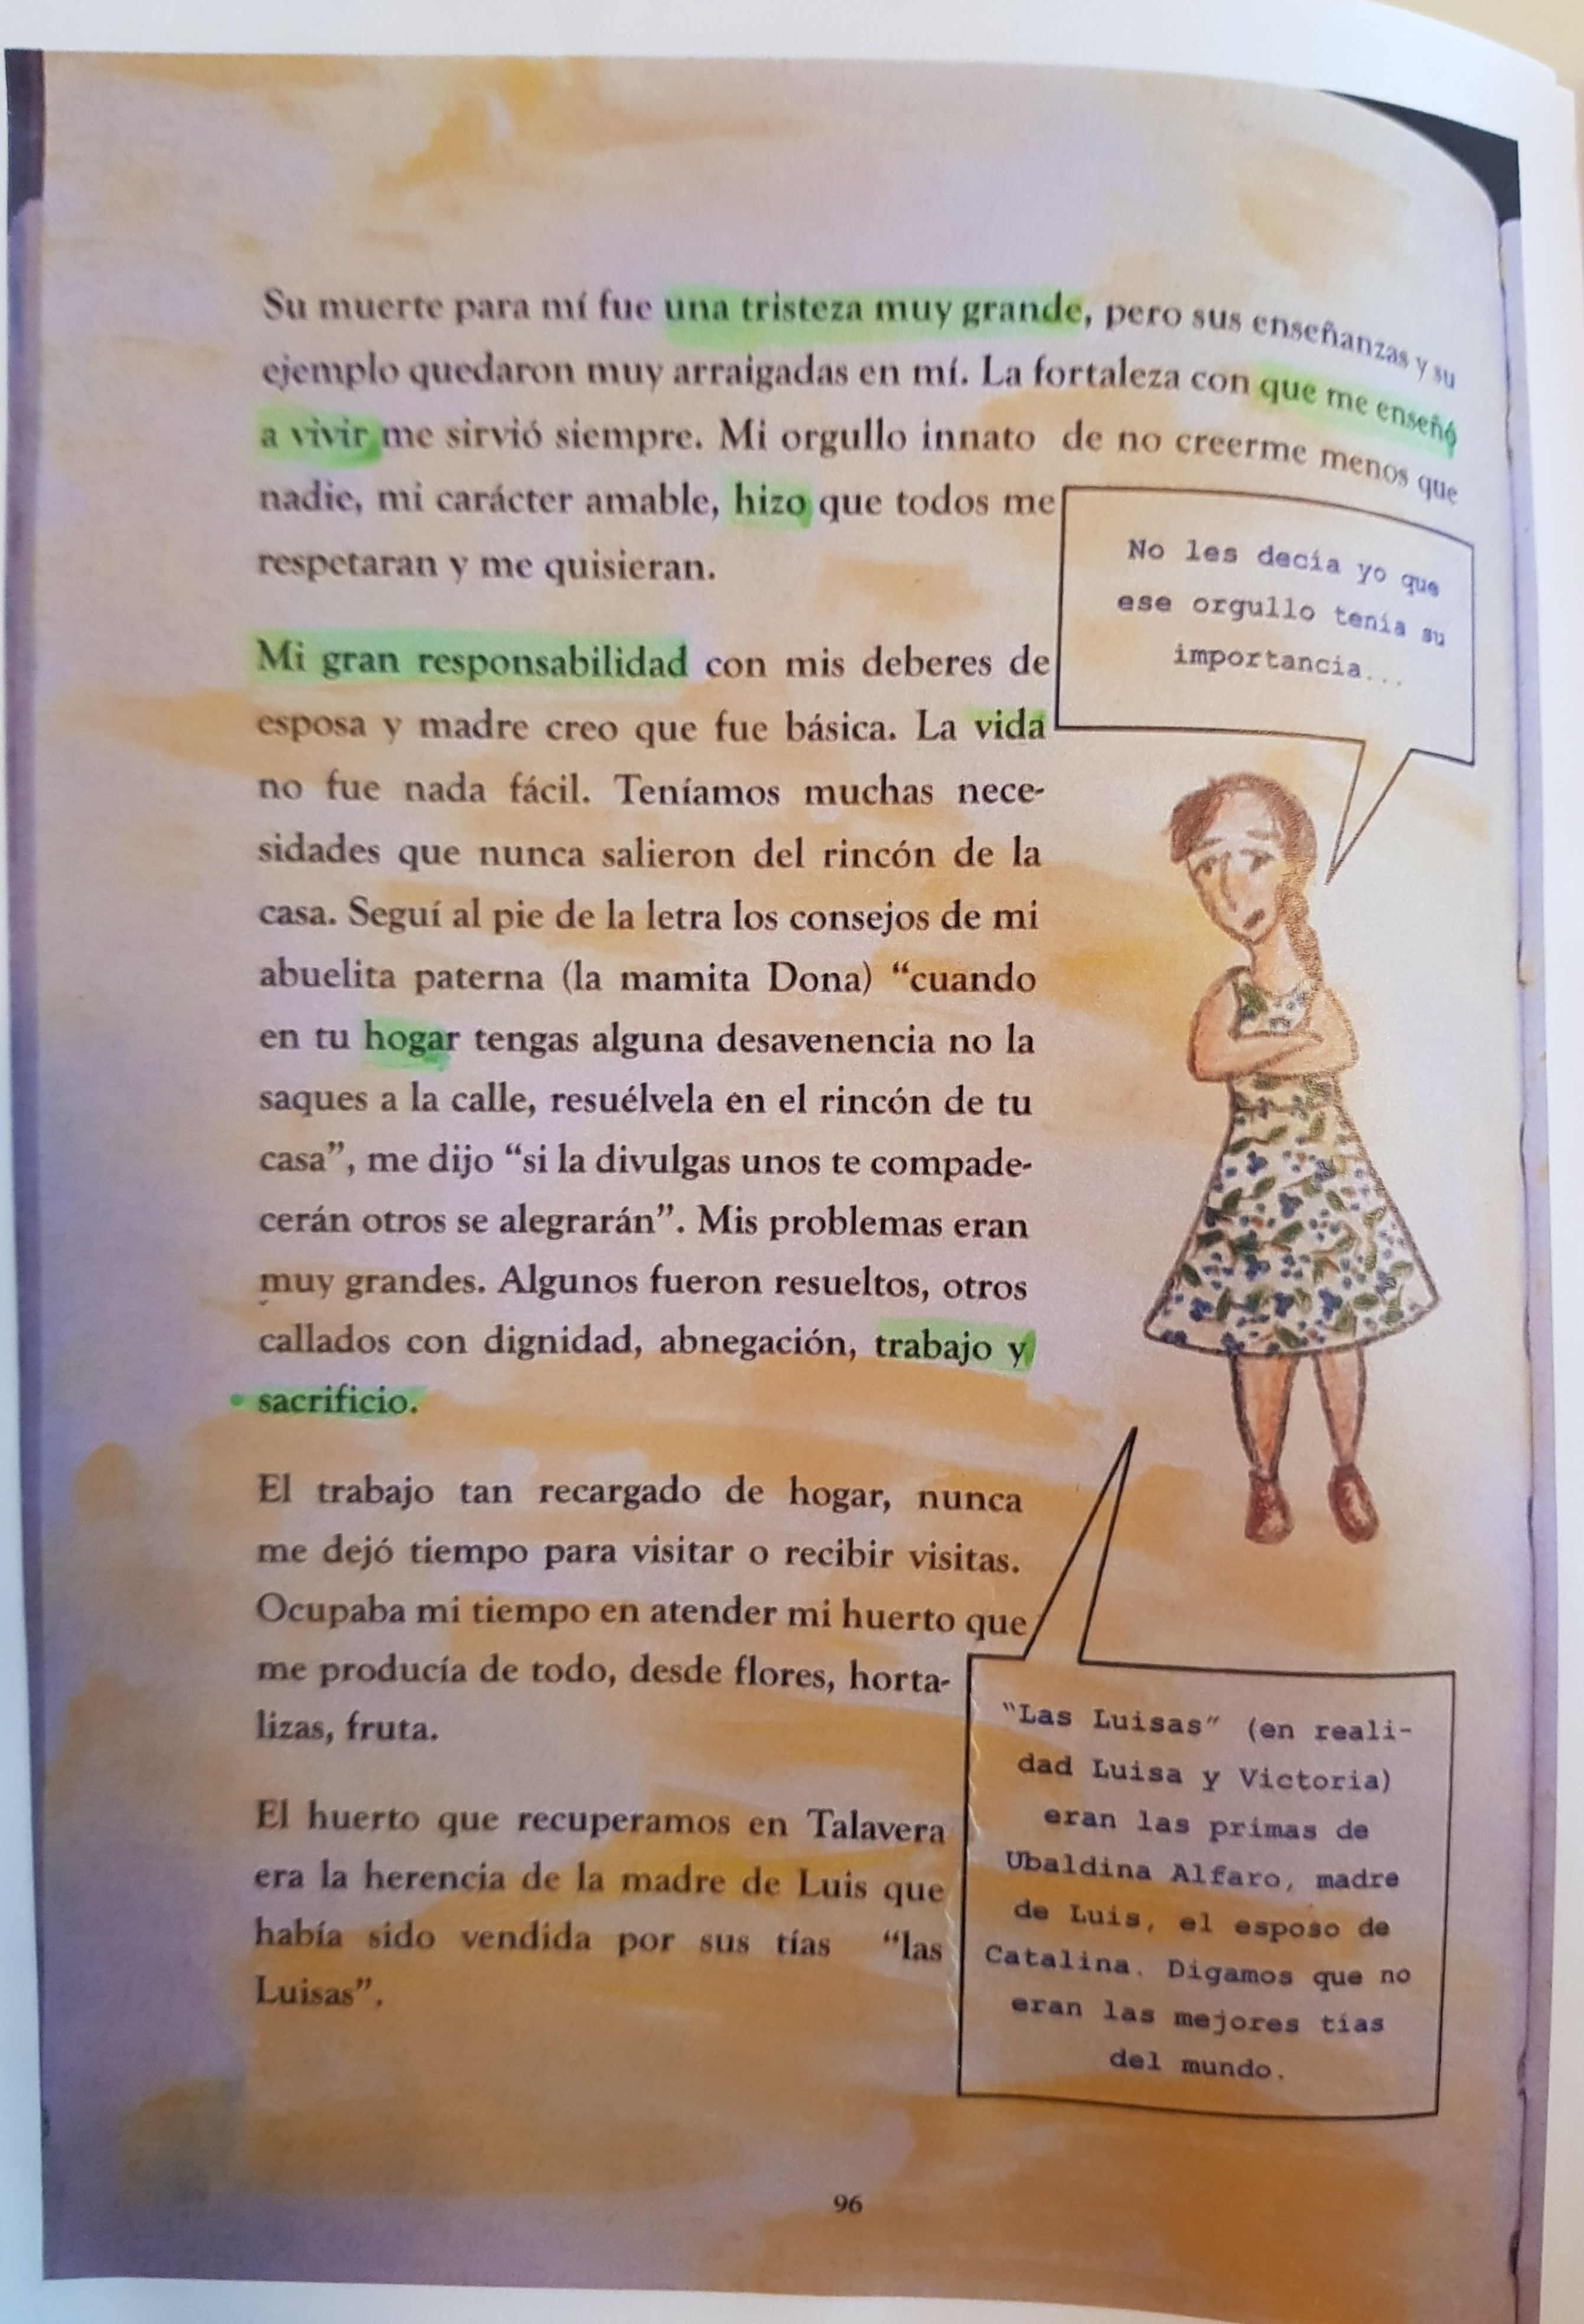 Su muerte para mí fue una tristeza muy grande, pero sus enseñanzas y su
ejemplo quedaron muy arraigadas en mí. La fortaleza con que me enseñó
a vivir me sirvió siempre. Mi orgullo innato de no creerme menos que
nadie, mi carácter amable, hizo que todos me
respetaran y me quisieran.
No les decía yo que
ese orgullo tenía su
importancia...
Mi gran responsabilidad con mis deberes de
esposa y madre creo que fue básica. La vida
no fue nada fácil. Teníamos muchas nece-
sidades que nunca salieron del rincón de la
casa. Seguí al pie de la letra los consejos de mi
abuelita paterna (la mamita Dona) “cuando
en tu hogar tengas alguna desavenencia no la
saques a la calle, resuélvela en el rincón de tu
casa”, me dijo “si la divulgas unos te compade-
cerán otros se alegrarán”. Mis problemas eran
muy grandes. Algunos fueron resueltos, otros
callados con dignidad, abnegación, trabajo y
sacrificio.
El trabajo tan recargado de hogar, nunca
me dejó tiempo para visitar o recibir visitas.
Ocupaba mi tiempo en atender mi huerto que
me producía de todo, desde flores, horta-
lizas, fruta.
El huerto que recuperamos en Talavera
era la herencia de la madre de Luis que
había sido vendida por sus tías “las
Luisas”.
“Las Luisas” (en reali-
dad Luisa y Victoria)
eran las primas de
Ubaldina Alfaro, madre
de Luis, el esposo de
Catalina. Digamos que no
eran las mejores tías
del mundo.
96